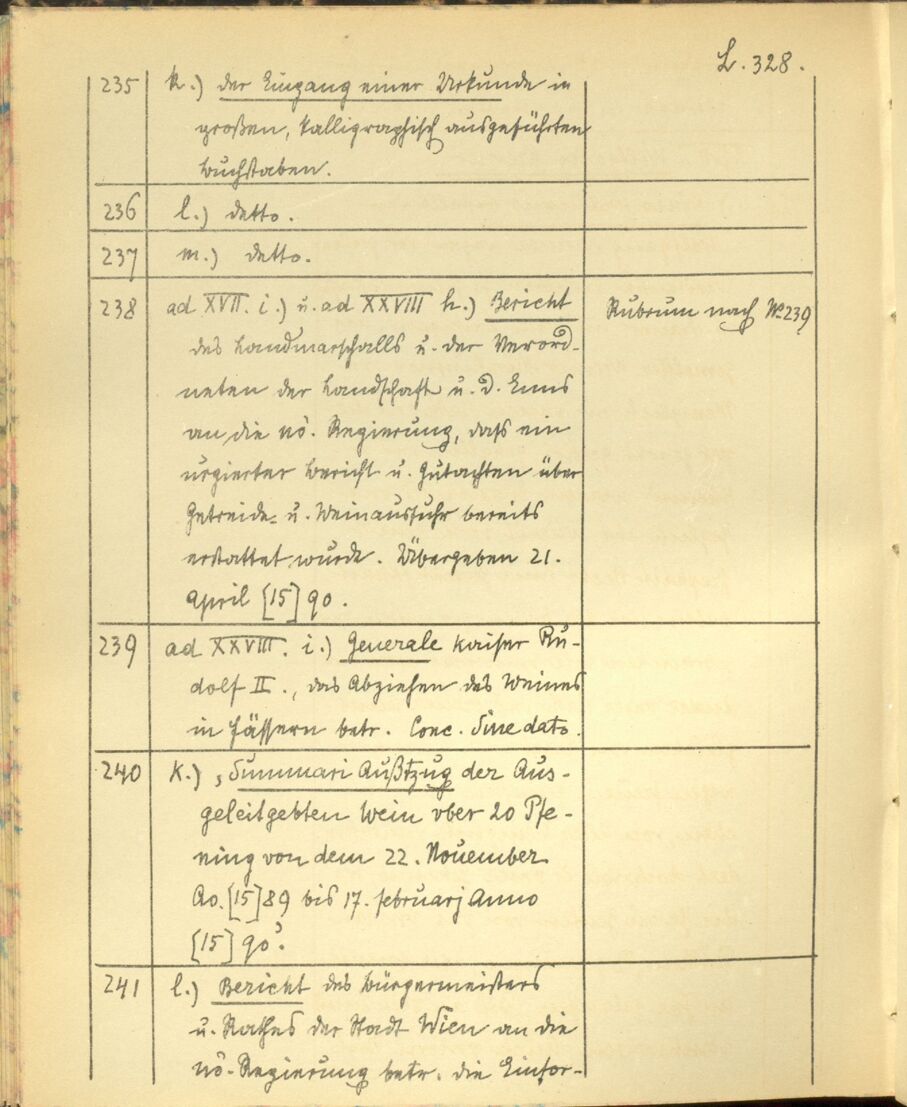 L. 328.
235 k.) der Eingang einer Urkunde in
großen, kalligraphisch ausgeführten
Buchstaben.
236 l.) detto.
237 m.) detto.
238 ad XVII. i.) u. ad XXVIII h.) Bericht Rubrum nach No 239
des Landmarschalls u. der Verord-
neten der Landschaft u. d. Enns
an die nö. Regierung, daß ein
urgierter Bericht u. Gutachten über
Getreide- u. Weinausfuhr bereits
erstattet wurde. Übergeben 21.
April [15]90.
239 ad XXVIII. i.) Generale Kaiser Ru-
dolf II., das Abziehen des Weines
in Fässern betr. Conc. Sine dato.
240 K.) „Summari Außtzug der Aus-
geleitgebten Wein vber 20 Pfe-
ning von dem 22. Nouember
Ao. [15]89 bis 17. februarj Anno
[15]90".
241 l.) Bericht des Bürgermeisters
u. Rathes der Stadt Wien an die
nö. Regierung betr. die Einfor-